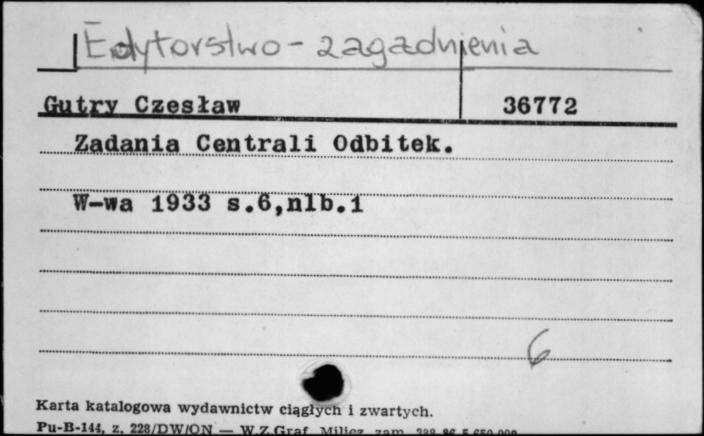 Edytorstwo - zagadnienia
Gutry Czesław 36772
Zadania Centrali Odbitek.
W-wa 1933 s.6,nlb.1
6
Karta katalogowa wydawnictw ciągłych i zwartych.
Pu-B-144, z. 228/DW/ON — W.Z.Graf. Milicz zam.